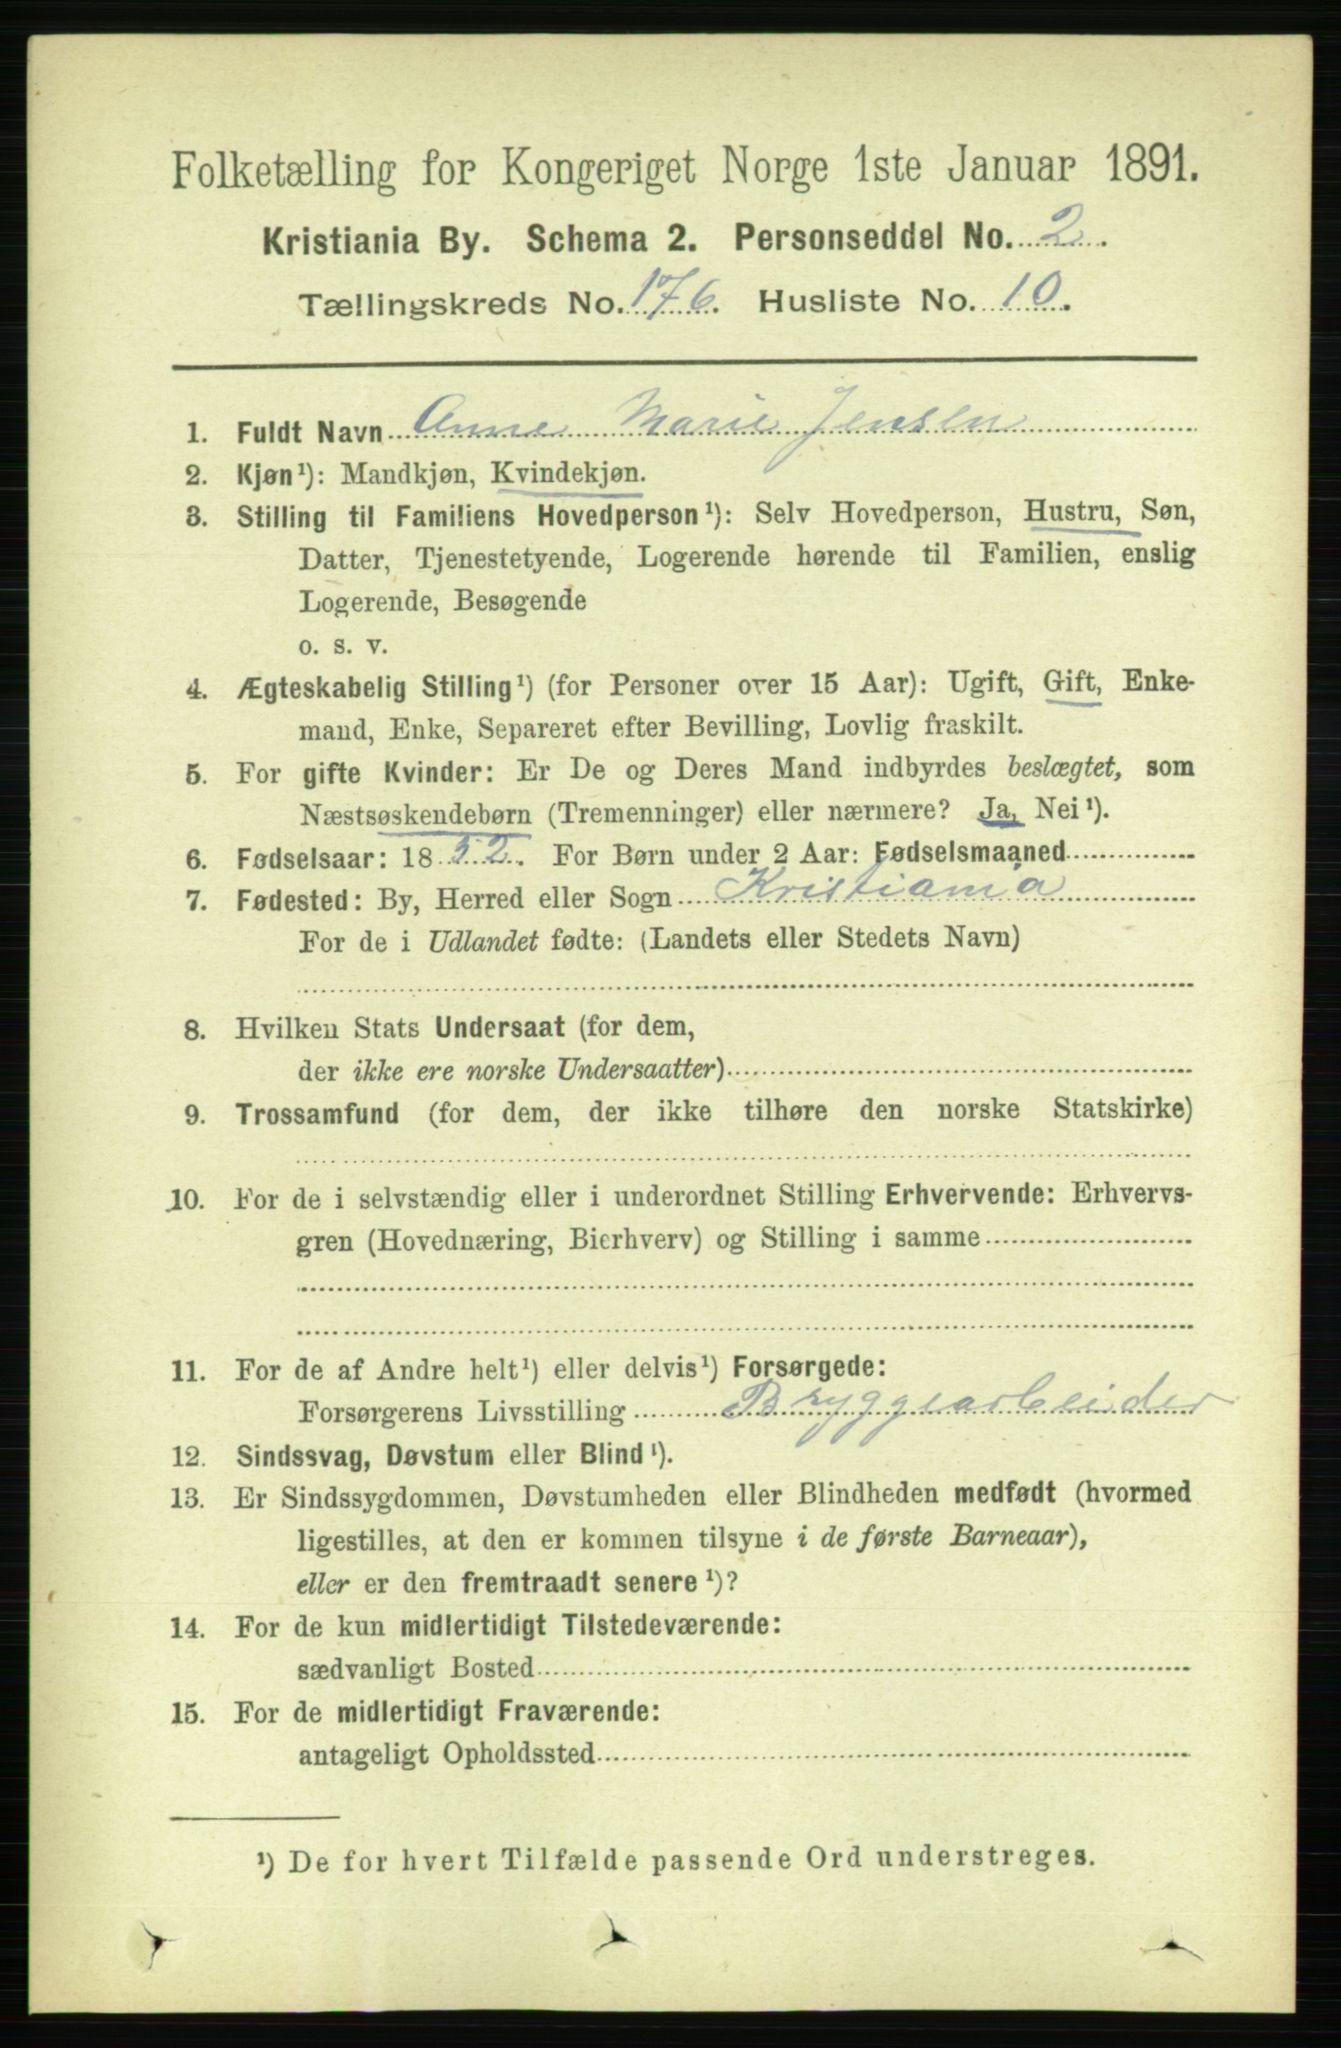 Folketælling for Kongeriget Norge 1ste Januar 1891.
Kristiania By. Schema 2. Personseddel No. 2.
Tællingskreds No. 176. Husliste No. 10.
1. Fuldt Navn Anne Marie Jensen
2. Kjøn¹): Mandkjøn, Kvindekjøn.
3. Stilling til Familiens Hovedperson¹): Selv Hovedperson, Hustru, Søn,
Datter, Tjenestetyende, Logerende hørende til Familien, enslig
Logerende, Besøgende
o. s. v.
4. Ægteskabelig Stilling¹) (for Personer over 15 Aar): Ugift, Gift, Enke-
mand, Enke, Separeret efter Bevilling, Lovlig fraskilt.
5. For gifte Kvinder: Er De og Deres Mand indbyrdes beslægtet, som
Næstsøskendebørn (Tremenninger) eller nærmere? Ja, Nei¹).
6. Fødselsaar: 1852. For Børn under 2 Aar: Fødselsmaaned
7. Fødested: By, Herred eller Sogn Kristiania
For de i Udlandet fødte: (Landets eller Stedets Navn)
8. Hvilken Stats Undersaat (for dem,
der ikke ere norske Undersaatter)
9. Trossamfund (for dem, der ikke tilhøre den norske Statskirke)
10. For de i selvstændig eller i underordnet Stilling Erhvervende: Erhvervs-
gren (Hovednæring, Bierhverv) og Stilling i samme
11. For de af Andre helt¹) eller delvis¹) Forsørgede:
Forsørgerens Livsstilling Bryggearbeider
12. Sindssvag, Døvstum eller Blind¹).
13. Er Sindssygdommen, Døvstumheden eller Blindheden medfødt (hvormed
ligestilles, at den er kommen tilsyne i de første Barneaar),
eller er den fremtraadt senere¹)?
14. For de kun midlertidigt Tilstedeværende:
sædvanligt Bosted
15. For de midlertidigt Fraværende:
antageligt Opholdssted
¹) De for hvert Tilfælde passende Ord understreges.